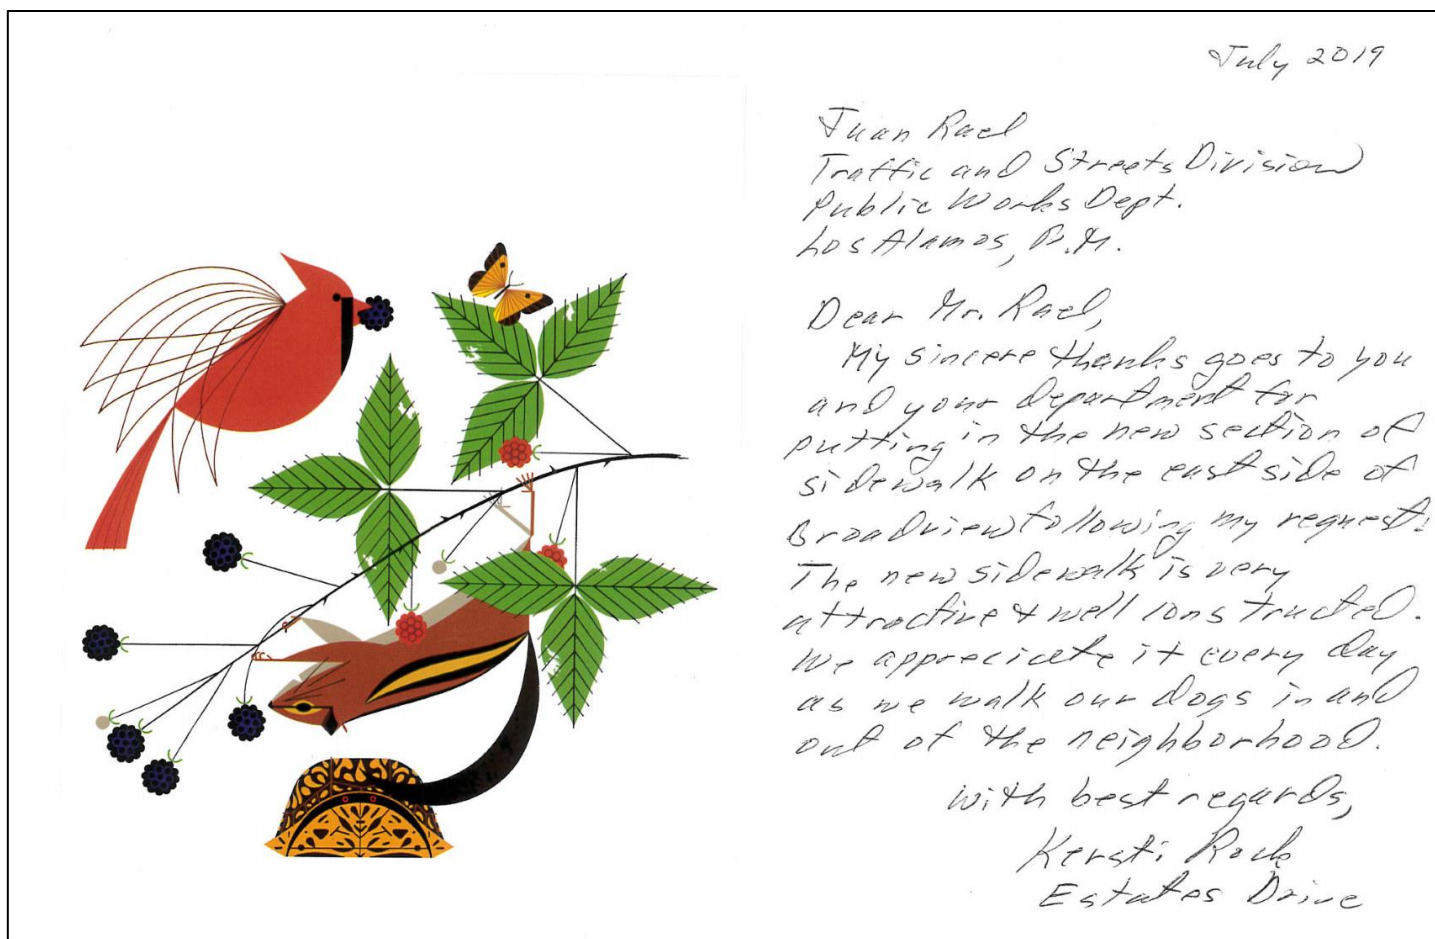 July 2019
Juan Rael
Traffic and Streets Division
Public Works Dept.
Los Alamos, N.M.
Dear Mr. Rael,
My sincere thanks goes to you
and your department for
putting in the new section of
sidewalk on the east side of
Broadview following my request.
The new sidewalk is very
attractive & well constructed.
We appreciate it every day
as we walk our dogs in and
out of the neighborhood.
With best regards,
Kersti Rock
Estates Drive